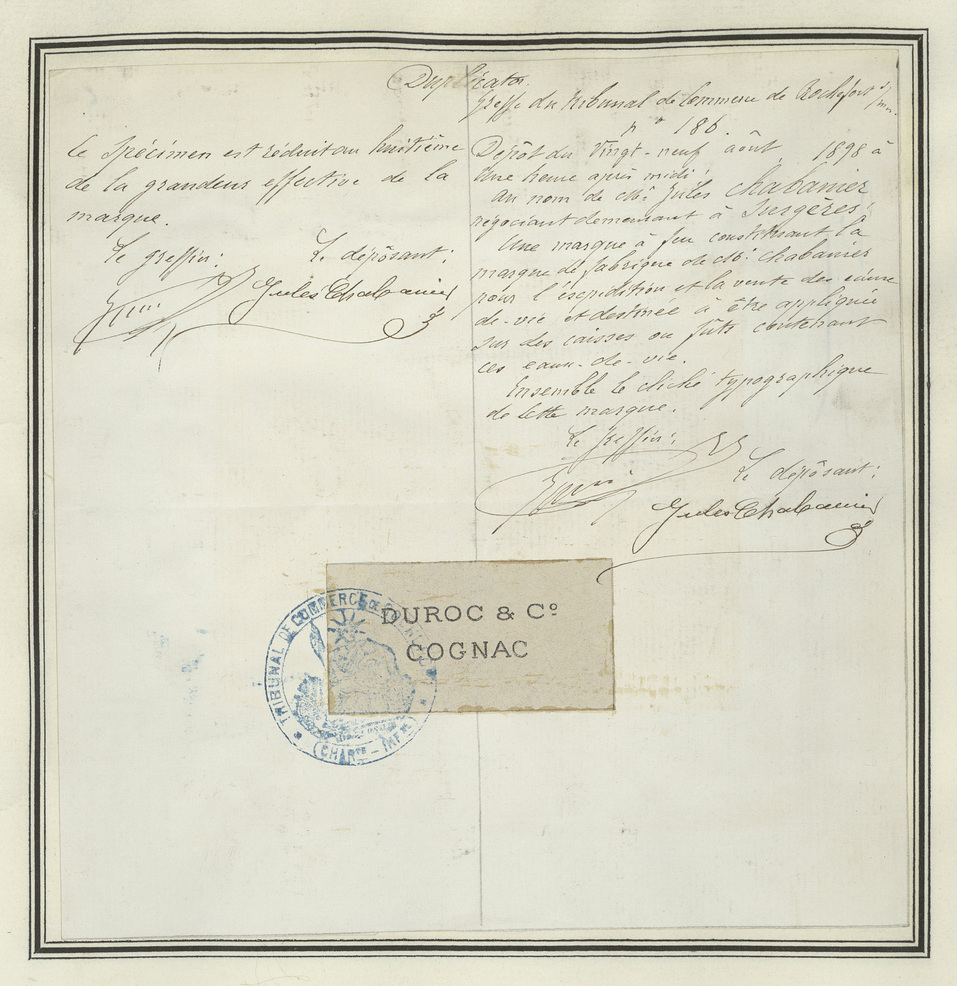 Duplicata.
Greffe du Tribunal de Commerce de Rochefort s/mer.
n° 186.
Dépôt du Vingt-neuf août 1898 à
Une heure après midi;
au nom de Mr. Jules Chabanier
négociant demeurant à Surgères;
Une marque à feu constituant la
marque de fabrique de Mr. Chabanier
pour l'expédition et la vente des eaux-
de-vie et destinée à être appliquée
sur des caisses ou fûts contenant
ces eaux-de-vie.
Ensemble le cliché typographique
de cette marque.
Le greffier:
Le dépôsant:
Jules Chabanier
Ce Spécimen est réduit au huitième
de la grandeur effective de la
marque.
Le greffier:
Le dépôsant:
Jules Chabanier
DUROC & Cº
COGNAC
TRIBUNAL DE COMMERCE DE
(CHARTE-INFRE)